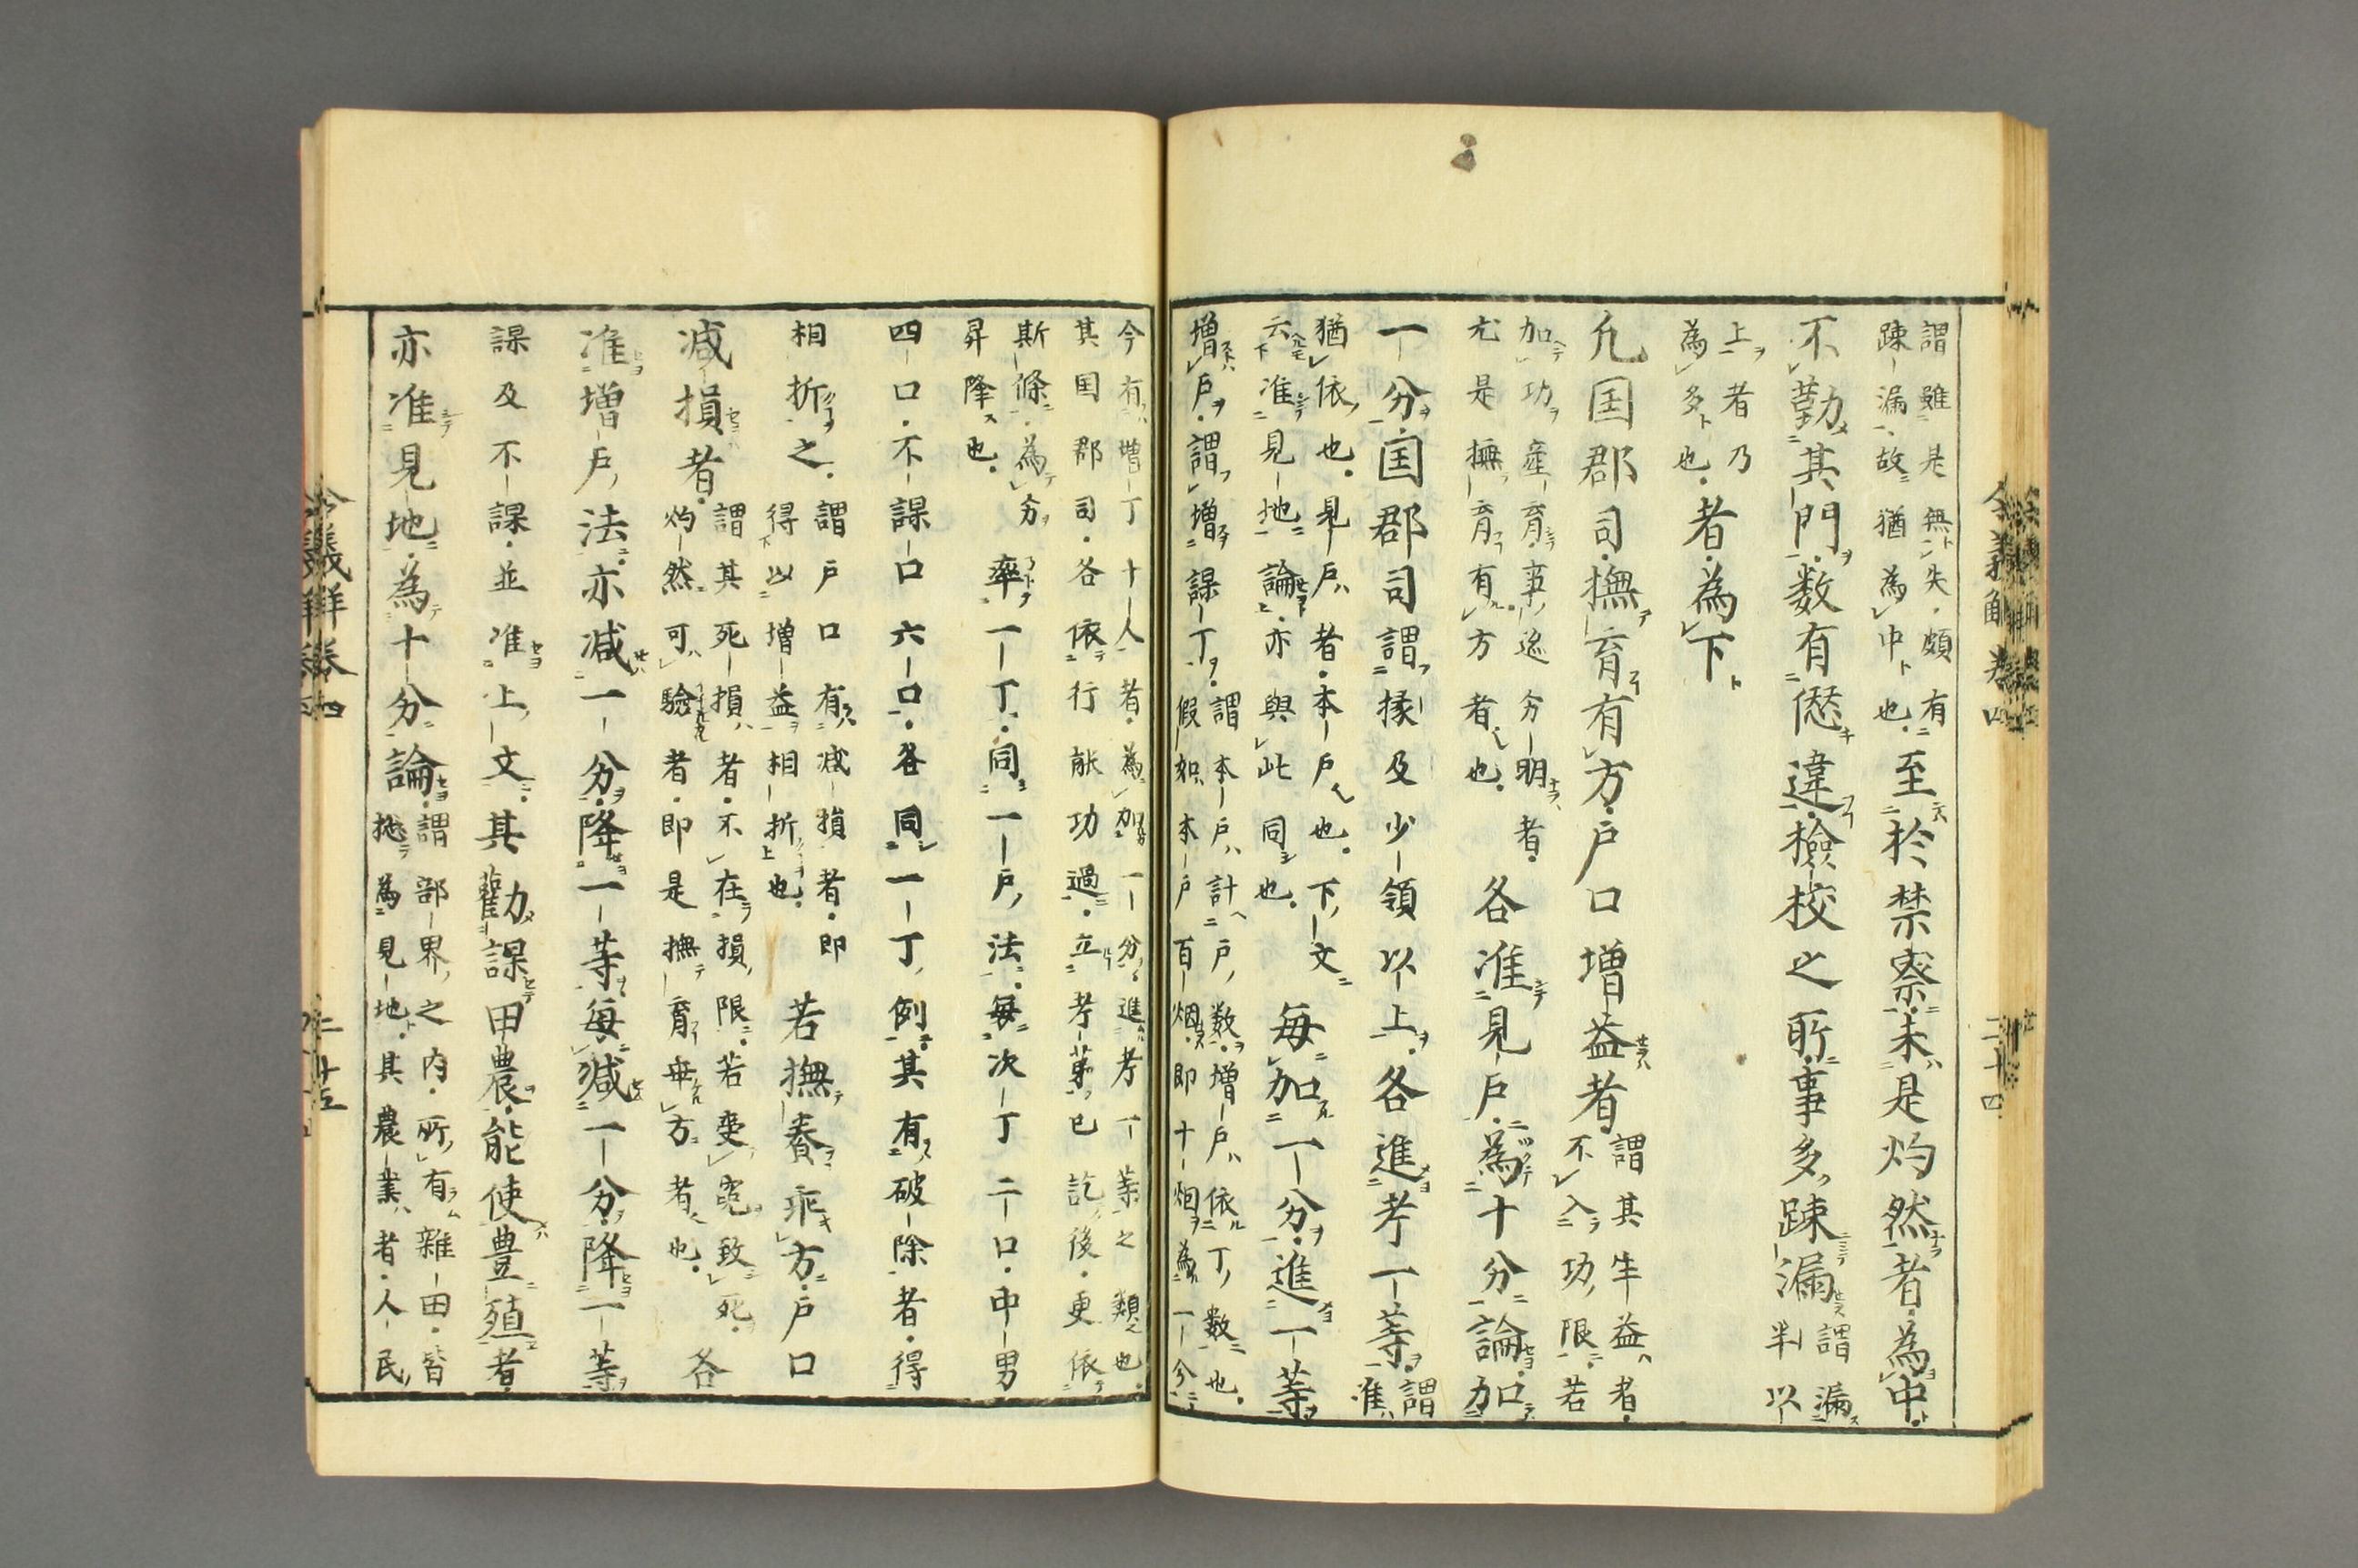 謂雖是無失頗有
踈漏故猶為中也至於禁察未是灼然者為中
不勤其門数有愆違檢校之所事多踈漏謂漏半以
上者乃
為多也者為下
凢国郡司撫育有方戸口増益者謂其牟益者
不入功限若
加功產育事迹分明者
尤是撫育有方者也各准見戸為十分論加
一分国郡司謂掾及少領以上各進考一等謂准
猶依也見戸者本戸也下文
云准見地論亦與此同也毎加一分進一等
増戸謂増課丁謂本戸計戸数増戸依丁数也
假如本戸百烟即十烟為一分
今有増丁十人者為加一分進考一等之類也
其国郡司各依行能功過立考苐已訖後更依
斯條為分
昇降也率一丁同一戸法毎次丁二口中男
四口不課口六口各同一丁例其有破除者得
相折之謂戸口有減損者即
得以増益相折也若撫養乖方戸口
減損者謂其死損者不在損限若使寃致死
灼然可驗者即是撫育乖方者也各
准増戸法亦减一分降一等毎减一分降一等
課及不課並准上文其勸課田農能使豊殖者
亦准見地為十分論謂部界之内所有雜田皆
揔為見地其農業者人民
令義解卷四 二十四
令義解卷四 二十五